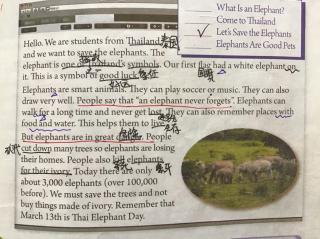 What Is an Elephant?
Come to Thailand
✓ Let's Save the Elephants
Elephants Are Good Pets
Hello. We are students from Thailand 泰国
and we want to save the elephants. The
elephant is one of Thailand's symbols. Our first flag had a white elephant on
it. This is a symbol of good luck.
Elephants are smart animals. They can play soccer or music. They can also
draw very well. People say that "an elephant never forgets". Elephants can
walk for a long time and never get lost. They can also remember places with
food and water. This helps them to live.
But elephants are in great danger. People
砍伐 cut down many trees so elephants are losing
their homes. People also kill elephants
for their ivory. Today there are only
about 3,000 elephants (over 100,000
before). We must save the trees and not
buy things made of ivory. Remember that
March 13th is Thai Elephant Day.